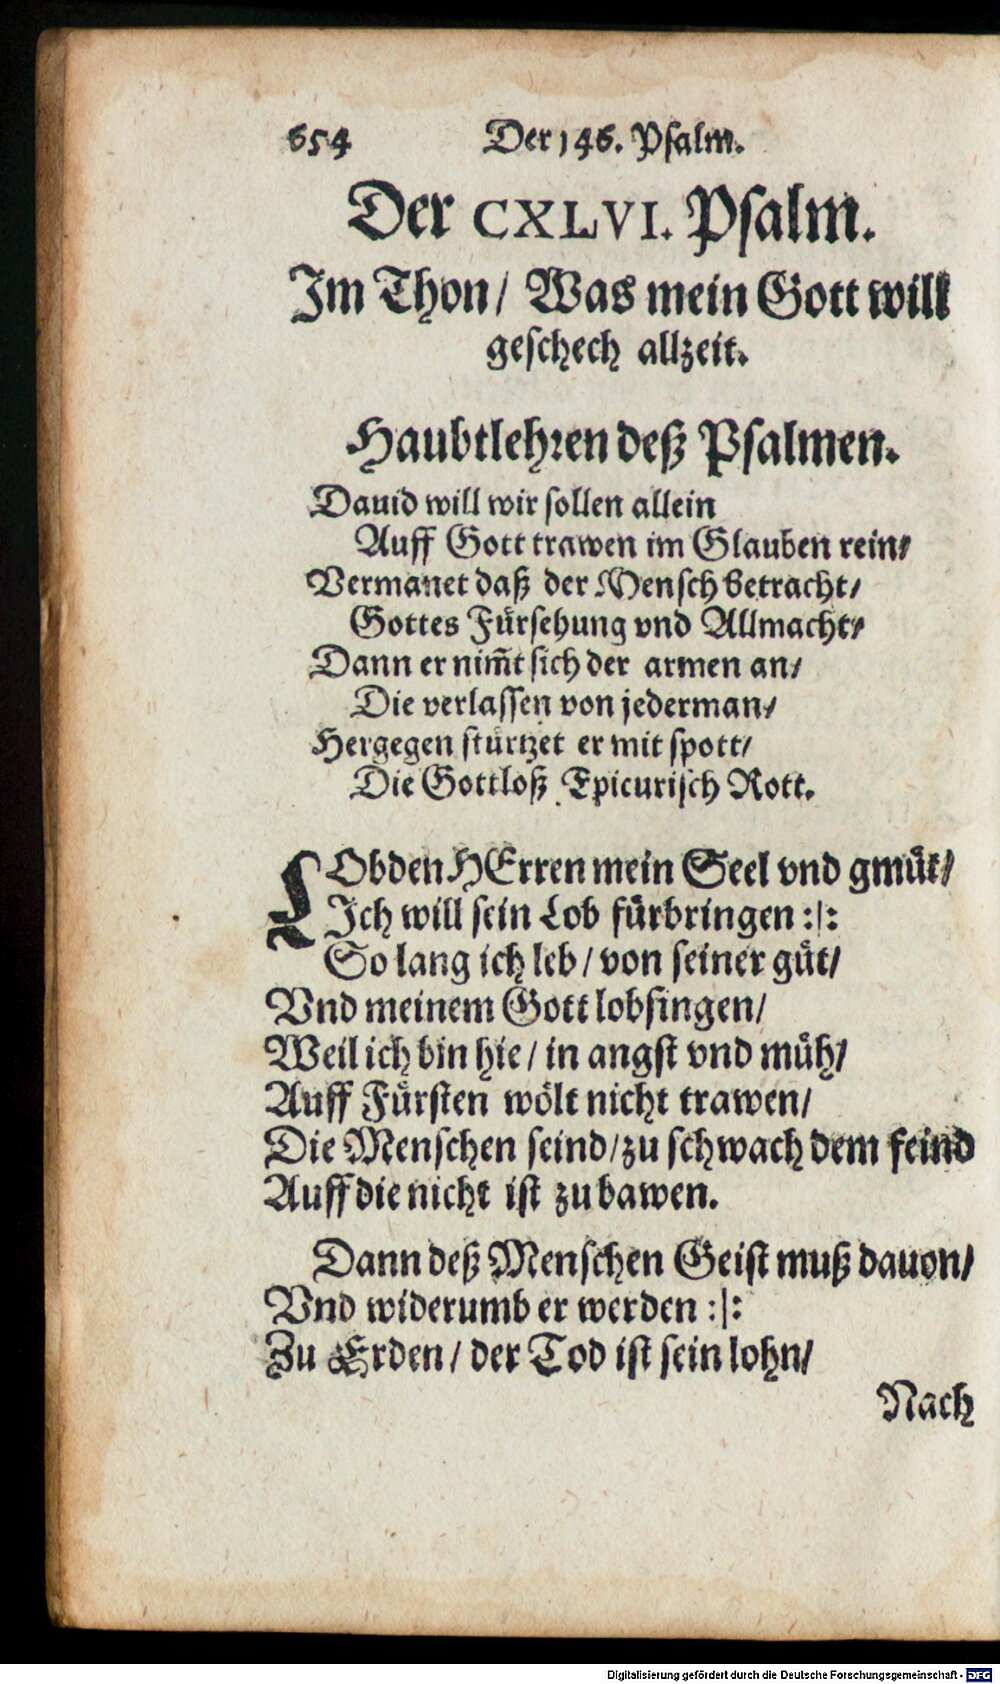 654 Der 146. Psalm.
Der CXLVI. Psalm.
Im Thon/ Was mein Gott will
geschech allzeit.
Haubtlehren deß Psalmen.
Dauid will wir sollen allein
Auff Gott trawen im Glauben rein/
Vermanet daß der Mensch betracht/
Gottes Fürsehung vnd Allmacht/
Dann er nim̃t sich der armen an/
Die verlassen von jederman/
Hergegen stürtzet er mit spott/
Die Gottloß Epicurisch Rott.
LOb den HErren mein Seel vnd gmüt/
Ich will sein Lob fürbringen :|:
So lang ich leb/ von seiner güt/
Vnd meinem Gott lobsingen/
Weil ich bin hie/ in angst vnd müh/
Auff Fürsten wölt nicht trawen/
Die Menschen seind/ zu schwach dem feind
Auff die nicht ist zu bawen.
Dann deß Menschen Geist muß dauon/
Vnd widerumb er werden :|:
Zu Erden/ der Tod ist sein lohn/
Nach
Digitalisierung gefördert durch die Deutsche Forschungsgemeinschaft - DFG